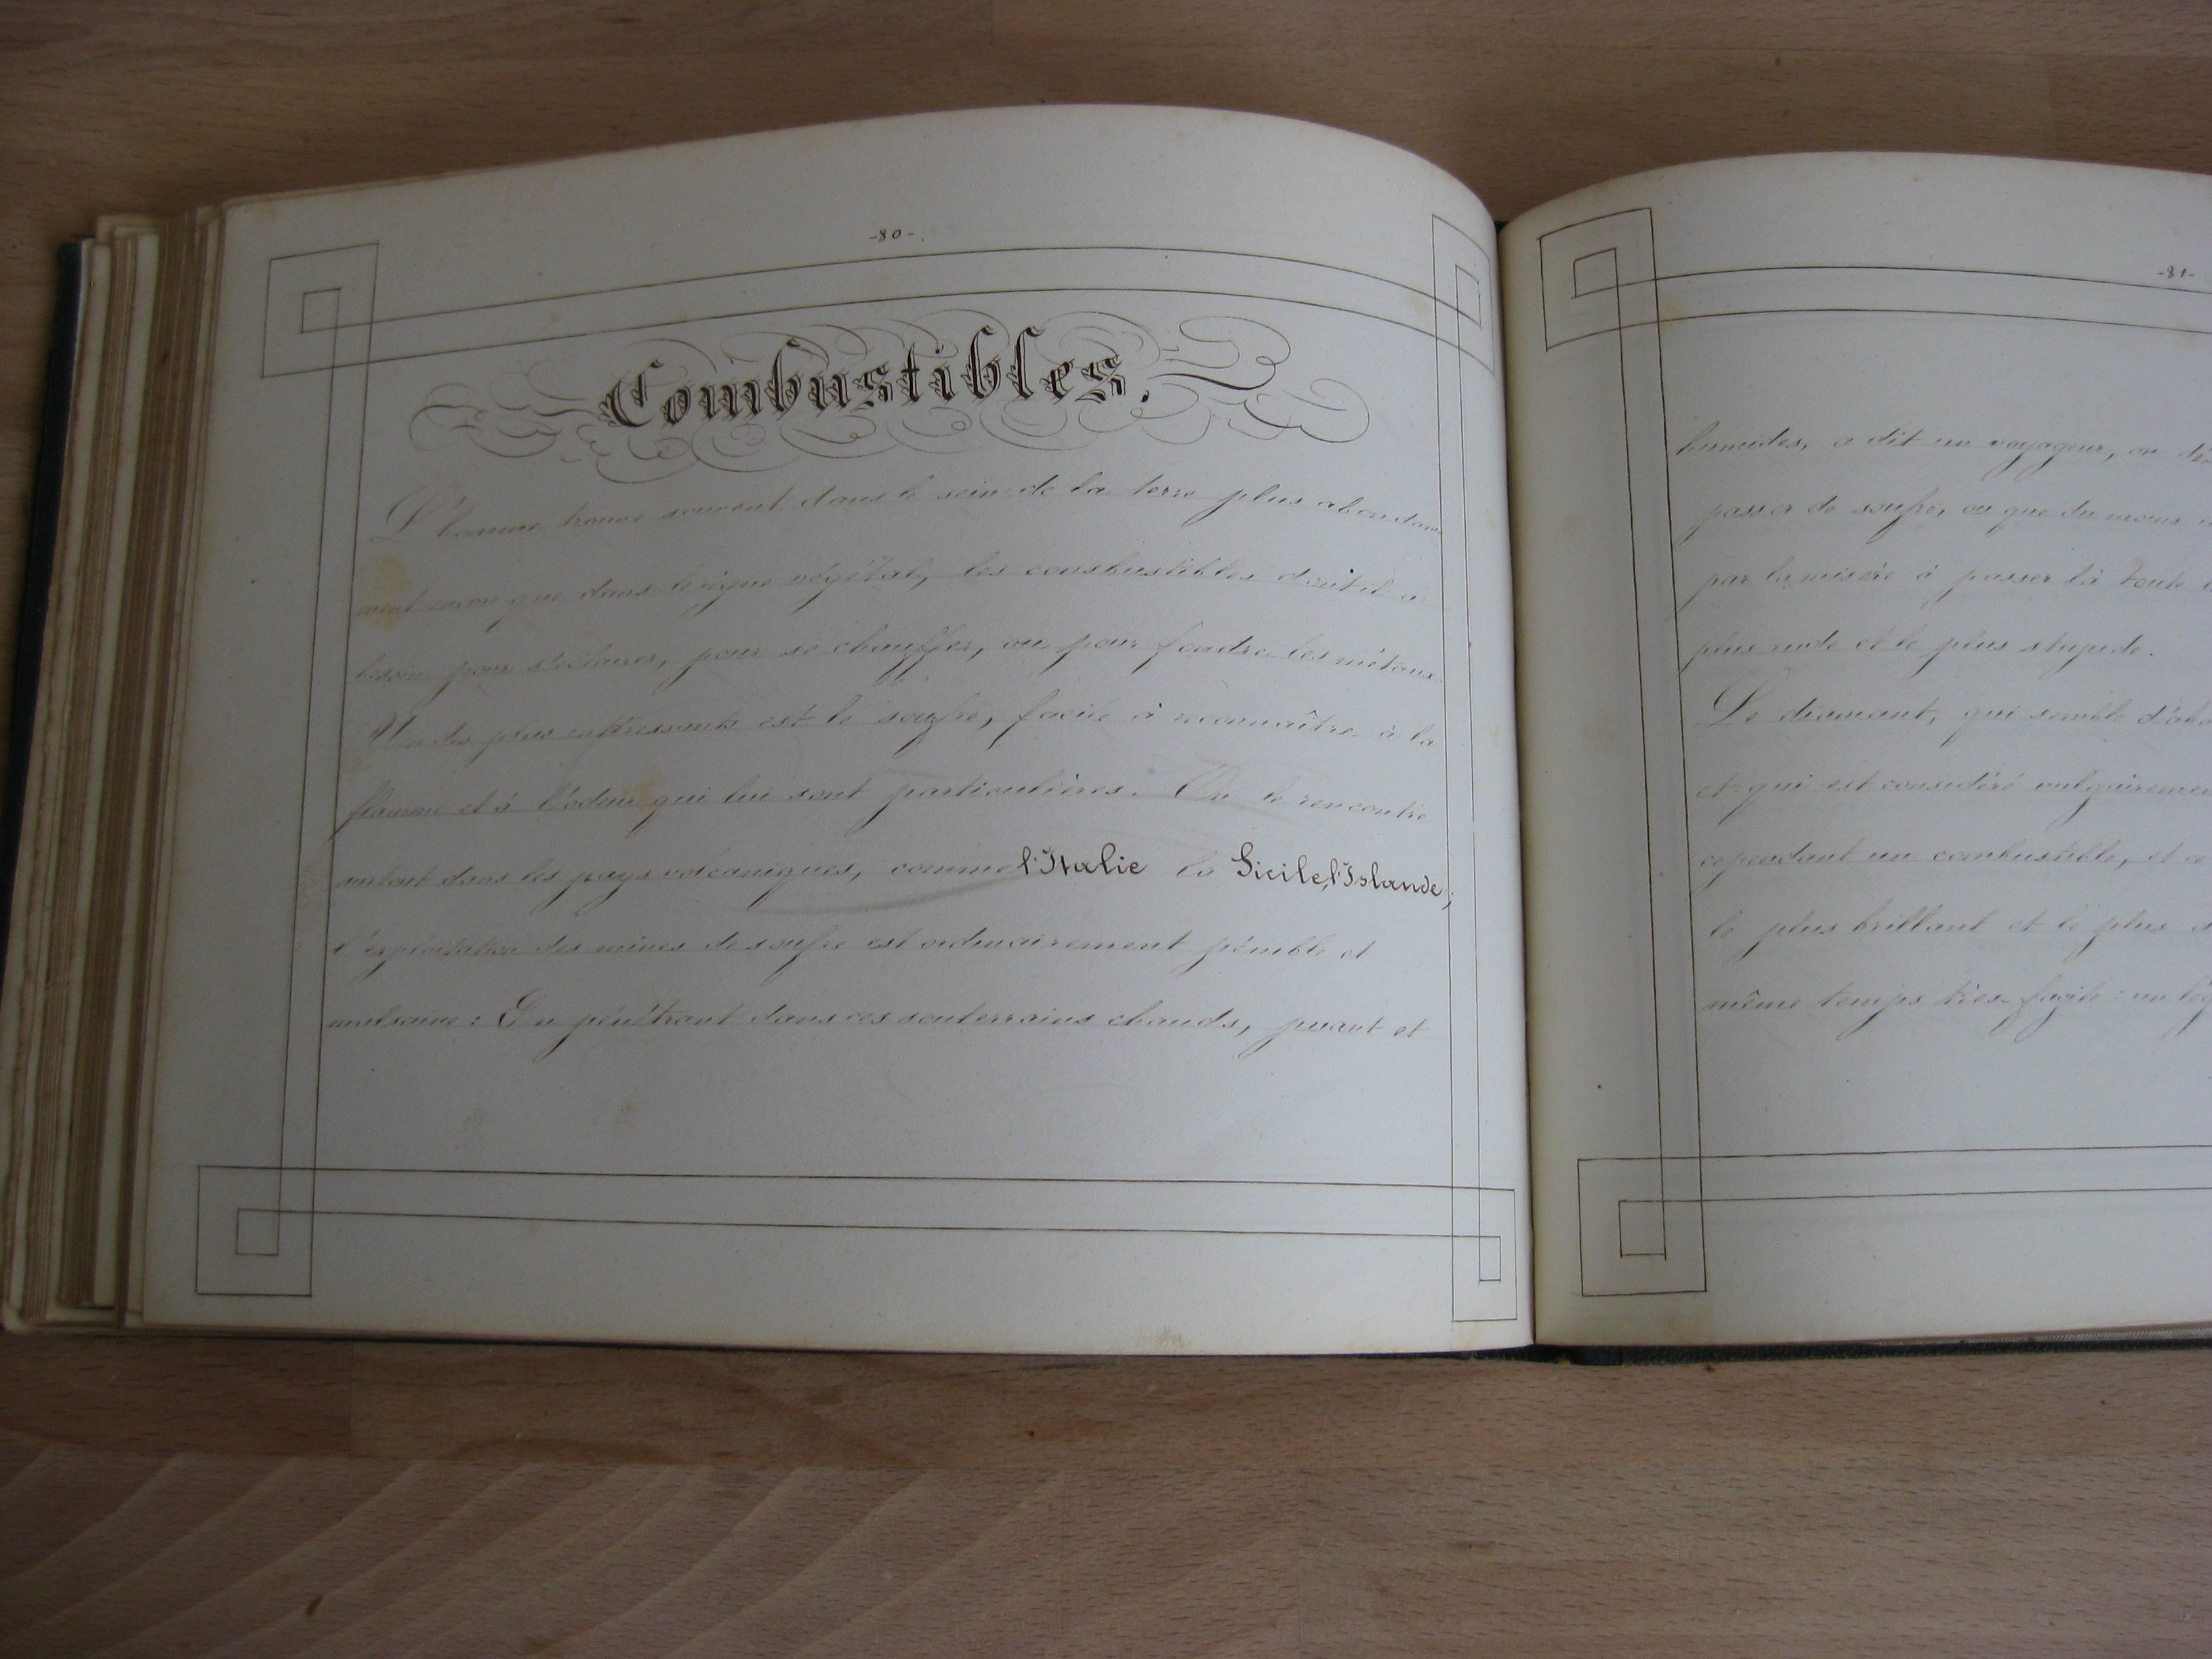 -80-
Combustibles.
L'homme trouve souvent dans le sein de la terre plus abondam
ment encore que dans le règne végétal, les combustibles dont il a
besoin pour s'éclairer, pour se chauffer, ou pour fondre les métaux.
Un des plus intéressants est le soufre, facile à reconnaître à la
flamme et à l'odeur qui lui sont particulières. On le rencontre
surtout dans les pays volcaniques, comme l'Italie la Sicile, l'Islande;
l'exploitation des mines de soufre est ordinairement pénible et
malsaine: En pénétrant dans ces souterrains chauds, puant et
-81-
humides, a dit un voyageur, on
passer de soufre, ou que du moins
par la misère à passer là toute
plus rude et le plus stupide.
Le diamant, qui semble
et qui est considéré
cependant un combustible, et
le plus brillant et le plus
même temps très fragile: un